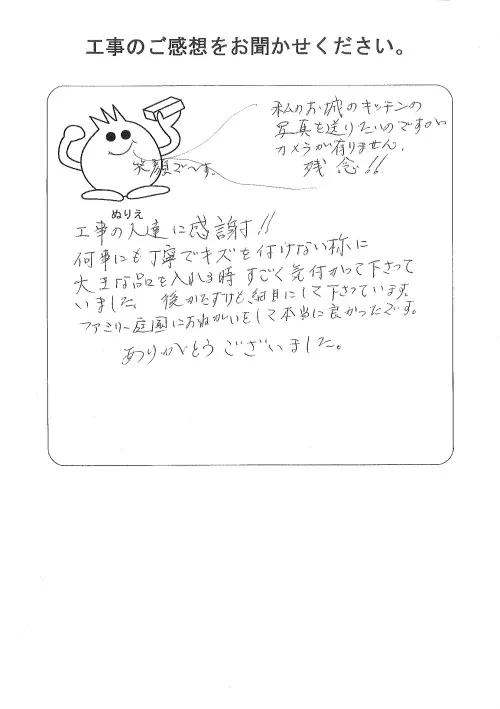 工事のご感想をお聞かせください。
私のお城のキッチンの
写真を送りたいのですが
カメラが有りません。
残念!!
笑顔で〜す。
ぬりえ
工事の人達に感謝!!
何事にも丁寧でキズを付けない様に
大きな品を入れる時すごく気付かって下さって
いました。後かたずけも綺麗にして下さっています。
ファミリー庭園におねがいをして本当に良かったです。
ありがとうございました。